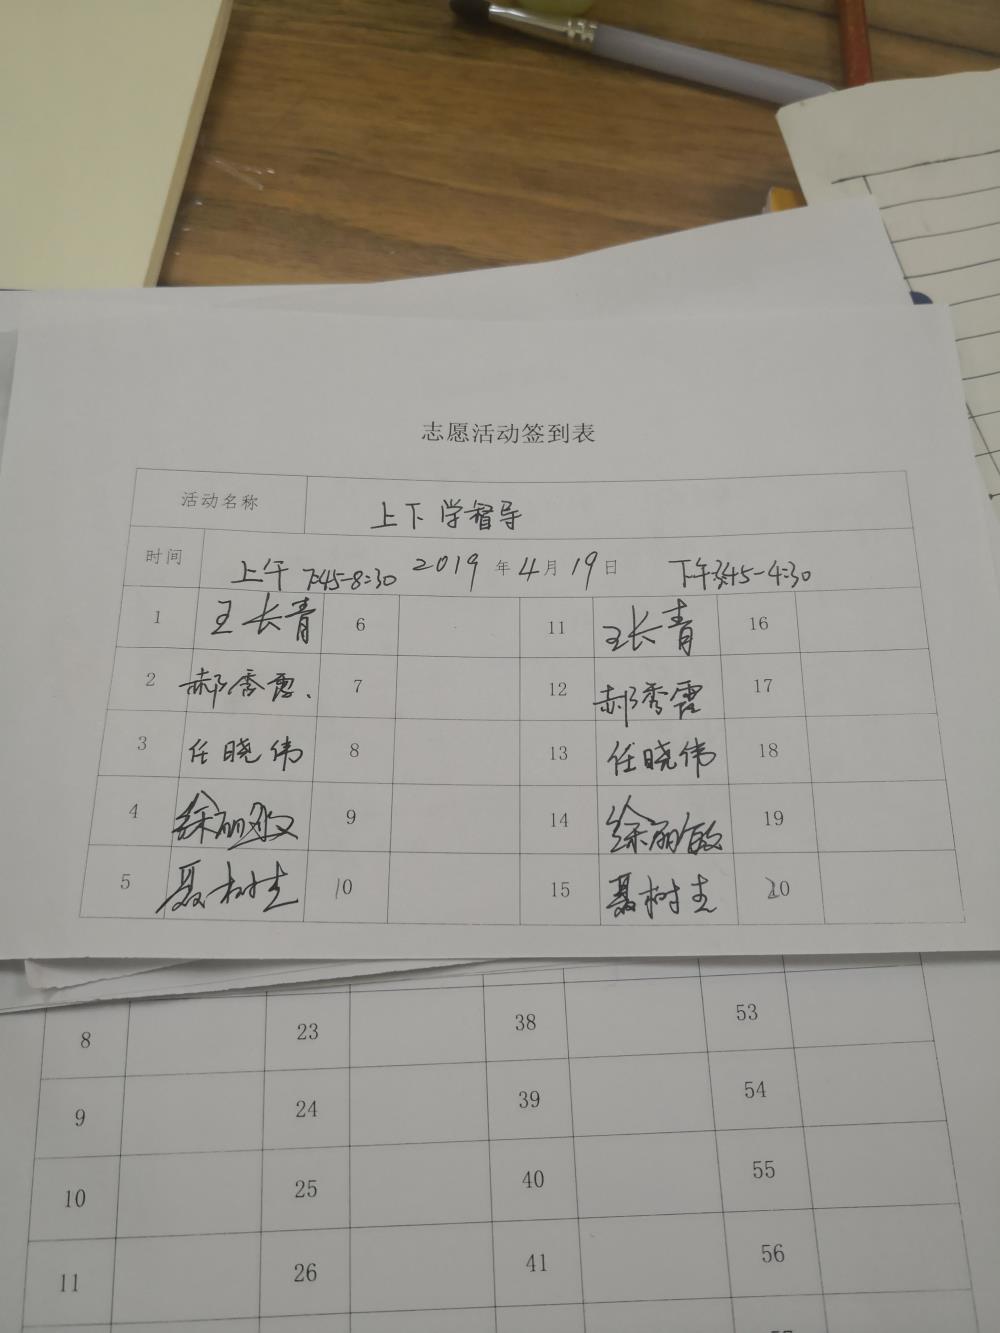 志愿活动签到表
活动名称 上下学督导
时间 上午 7:45-8:30 2019 年 4 月 19 日 下午3:45-4:30
1 王长青 6 11 王长青 16
2 郝秀霞 7 12 郝秀霞 17
3 任晓伟 8 13 任晓伟 18
4 徐丽敏 9 14 徐丽敏 19
5 聂树生 10 15 聂树生 20
8 23 38 53
9 24 39 54
10 25 40 55
11 26 41 56